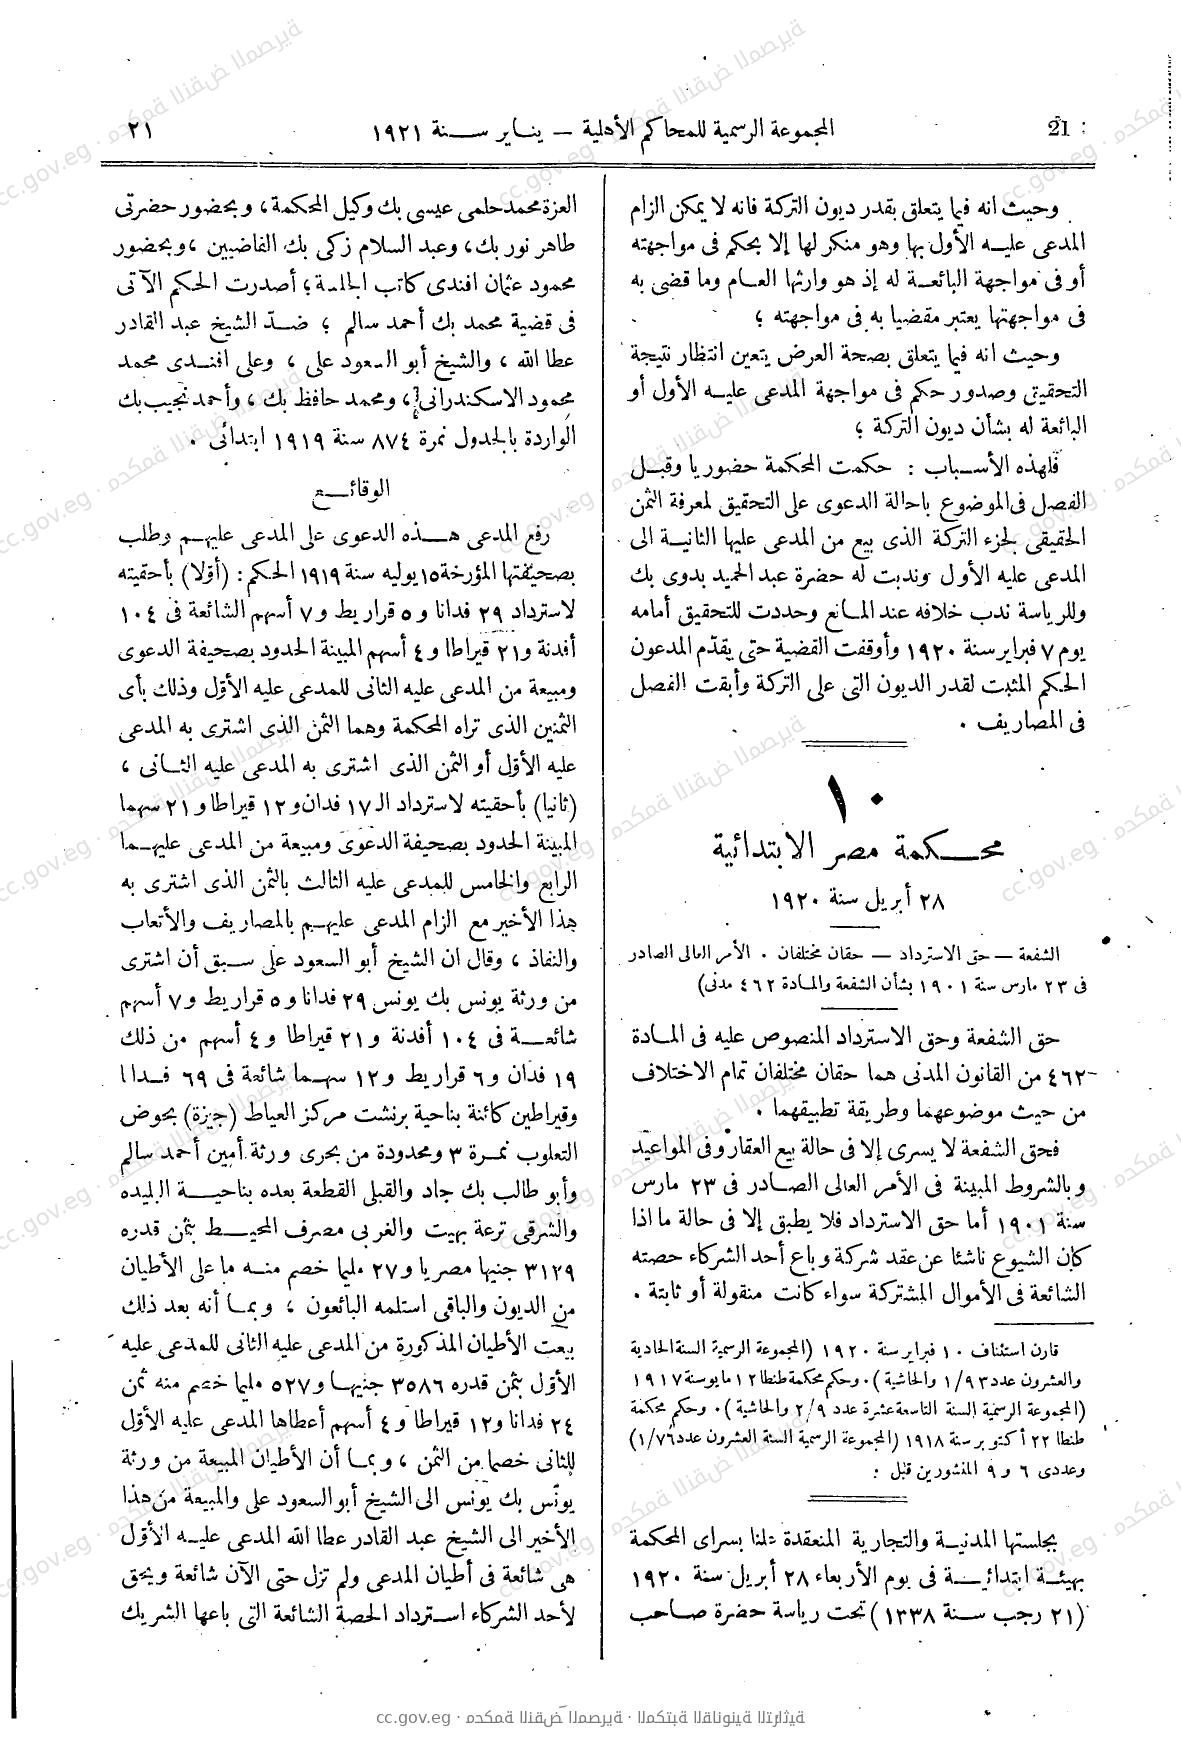 21 المجموعة الرسمية للمحاكم الأهلية – يناير سنة ١٩٢١ ٢١
وحيث انه فيما يتعلق بقدر ديون التركة فانه لا يمكن الزام
المدعى عليه الأول بها وهو منكر لها إلا بحكم فى مواجهته
أو فى مواجهة البائعة له إذ هو وارثها العام وما قضى به
فى مواجهتها يعتبر مقضيا به فى مواجهته ؛
وحيث انه فيما يتعلق بصحة العرض يتعين انتظار نتيجة
التحقيق وصدور حكم فى مواجهة المدعى عليه الأول أو
البائعة له بشأن ديون التركة ؛
فلهذه الأسباب : حكمت المحكمة حضوريا وقبل
الفصل فى الموضوع باحالة الدعوى على التحقيق لمعرفة الثمن
الحقيقى لجزء التركة الذى بيع من المدعى عليها الثانية الى
المدعى عليه الأول وندبت له حضرة عبد الحميد بدوى بك
وللرياسة ندب خلافه عند المانع وحددت للتحقيق أمامه
يوم ٧ فبراير سنة ١٩٢٠ وأوقفت القضية حتى يقدّم المدعون
الحكم المثبت لقدر الديون التى على التركة وأبقت الفصل
فى المصاريف .
١٠
محكمة مصر الابتدائية
٢٨ أبريل سنة ١٩٢٠
الشفعة – حق الاسترداد – حقان مختلفان . الأمر العالى الصادر
فى ٢٣ مارس سنة ١٩٠١ بشأن الشفعة والمادة ٤٦٢ مدنى)
حق الشفعة وحق الاسترداد المنصوص عليه فى المادة
٤٦٢ من القانون المدنى هما حقان مختلفان تمام الاختلاف
من حيث موضوعهما وطريقة تطبيقهما .
فحق الشفعة لا يسرى إلا فى حالة بيع العقار وفى المواعيد
وبالشروط المبينة فى الأمر العالى الصادر فى ٢٣ مارس
سنة ١٩٠١ أما حق الاسترداد فلا يطبق إلا فى حالة ما اذا
كان الشيوع ناشئا عن عقد شركة وباع أحد الشركاء حصته
الشائعة فى الأموال المشتركة سواء كانت منقولة أو ثابتة .
قارن استئناف ١٠ فبراير سنة ١٩٢٠ (المجموعة الرسمية السنة الحادية
والعشرون عدد ١/٩٣ والحاشية). وحكم محكمة طنطا ١٢ مايو سنة ١٩١٧
(المجموعة الرسمية السنة التاسعة عشرة عدد ٢/٩ والحاشية). وحكم محكمة
طنطا ٢٢ أكتوبر سنة ١٩١٨ (المجموعة الرسمية السنة العشرون عدد ١/٧٦)
وعددى ٦ و ٩ المنشورين قبل :
بجلستها المدنية والتجارية المنعقدة علنا بسراى المحكمة
بهيئة ابتدائية فى يوم الأربعاء ٢٨ أبريل سنة ١٩٢٠
(٢١ رجب سنة ١٣٣٨) تحت رياسة حضرة صاحب
العزة محمد حلمى عيسى بك وكيل المحكمة، وبحضور حضرتى
طاهر نور بك، وعبد السلام زكى بك القاضيين، وبحضور
محمود عثمان افندى كاتب الجلسة؛ أصدرت الحكم الآتى
فى قضية محمد بك أحمد سالم ؛ ضدّ الشيخ عبد القادر
عطا الله ، والشيخ أبو السعود على ، وعلى افندى محمد
محمود الاسكندرانى، ومحمد حافظ بك ، وأحمد نجيب بك
الواردة بالجدول نمرة ٨٧٤ سنة ١٩١٩ ابتدائى .
الوقائع
رفع المدعى هذه الدعوى على المدعى عليهم وطلب
بصحيفتها المؤرخة ١٥ يوليه سنة ١٩١٩ الحكم : (أوّلا) بأحقيته
لاسترداد ٢٩ فدانا و ٥ قراريط و ٧ أسهم الشائعة فى ١٠٤
أفدنة و ٢١ قيراطا و ٤ أسهم المبينة الحدود بصحيفة الدعوى
ومبيعة من المدعى عليه الثانى للمدعى عليه الأوّل وذلك بأى
الثمنين الذى تراه المحكمة وهما الثمن الذى اشترى به المدعى
عليه الأوّل أو الثمن الذى اشترى به المدعى عليه الثانى ،
(ثانيا) بأحقيته لاسترداد الـ ١٧ فدان و ١٢ قيراطا و ٢١ سهما
المبينة الحدود بصحيفة الدعوى ومبيعة من المدعى عليهما
الرابع والخامس للمدعى عليه الثالث بالثمن الذى اشترى به
هذا الأخير مع الزام المدعى عليهم بالمصاريف والأتعاب
والنفاذ ، وقال ان الشيخ أبو السعود على سبق أن اشترى
من ورثة يونس بك يونس ٢٩ فدانا و ٥ قراريط و ٧ أسهم
شائعة فى ١٠٤ أفدنة و ٢١ قيراطا و ٤ أسهم من ذلك
١٩ فدان و ٦ قراريط و ١٢ سهما شائعة فى ٦٩ فدانا
وقيراطين كائنة بناحية برنشت مركز العياط (جيزة) بحوض
التعلوب نمرة ٣ ومحدودة من بحرى ورثة أمين أحمد سالم
وأبو طالب بك جاد والقبلى القطعة بعده بناحية البليده
والشرقى ترعة بهيت والغربى مصرف المحيط بثمن قدره
٣١٢٩ جنيها مصريا و ٢٧ مليما خصم منه ما على الأطيان
من الديون والباقى استلمه البائعون ، وبما أنه بعد ذلك
بيعت الأطيان المذكورة من المدعى عليه الثانى للمدعى عليه
الأوّل بثمن قدره ٣٥٨٦ جنيها و ٥٢٧ مليما خصم منه ثمن
٢٤ فدانا و ١٢ قيراطا و ٤ أسهم أعطاها المدعى عليه الأوّل
للثانى خصما من الثمن ، وبما أن الأطيان المبيعة من ورثة
يونس بك يونس الى الشيخ أبو السعود على والمبيعة من هذا
الأخير الى الشيخ عبد القادر عطا الله المدعى عليه الأوّل
هى شائعة فى أطيان المدعى ولم تزل حتى الآن شائعة ويحق
لأحد الشركاء استرداد الحصة الشائعة التى باعها الشريك
cc.gov.eg · محكمة النقض المصرية · المكتبة القانونية التراثية